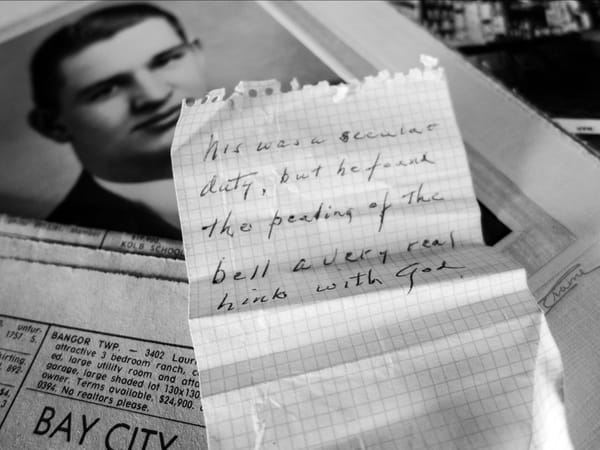 his was a secular
duty, but he found
the pealing of the
bell a very real
link with God
KOLB SCHOO
untur-
1757 S.
892-
BANGOR TWP. — 3402 Laur
attractive 3 bedroom ranch, c
ed, large utility room and atta
garage, large shaded lot 130x130
owner. Terms available. $24,900.
0394. No realtors please.
BAY CITY